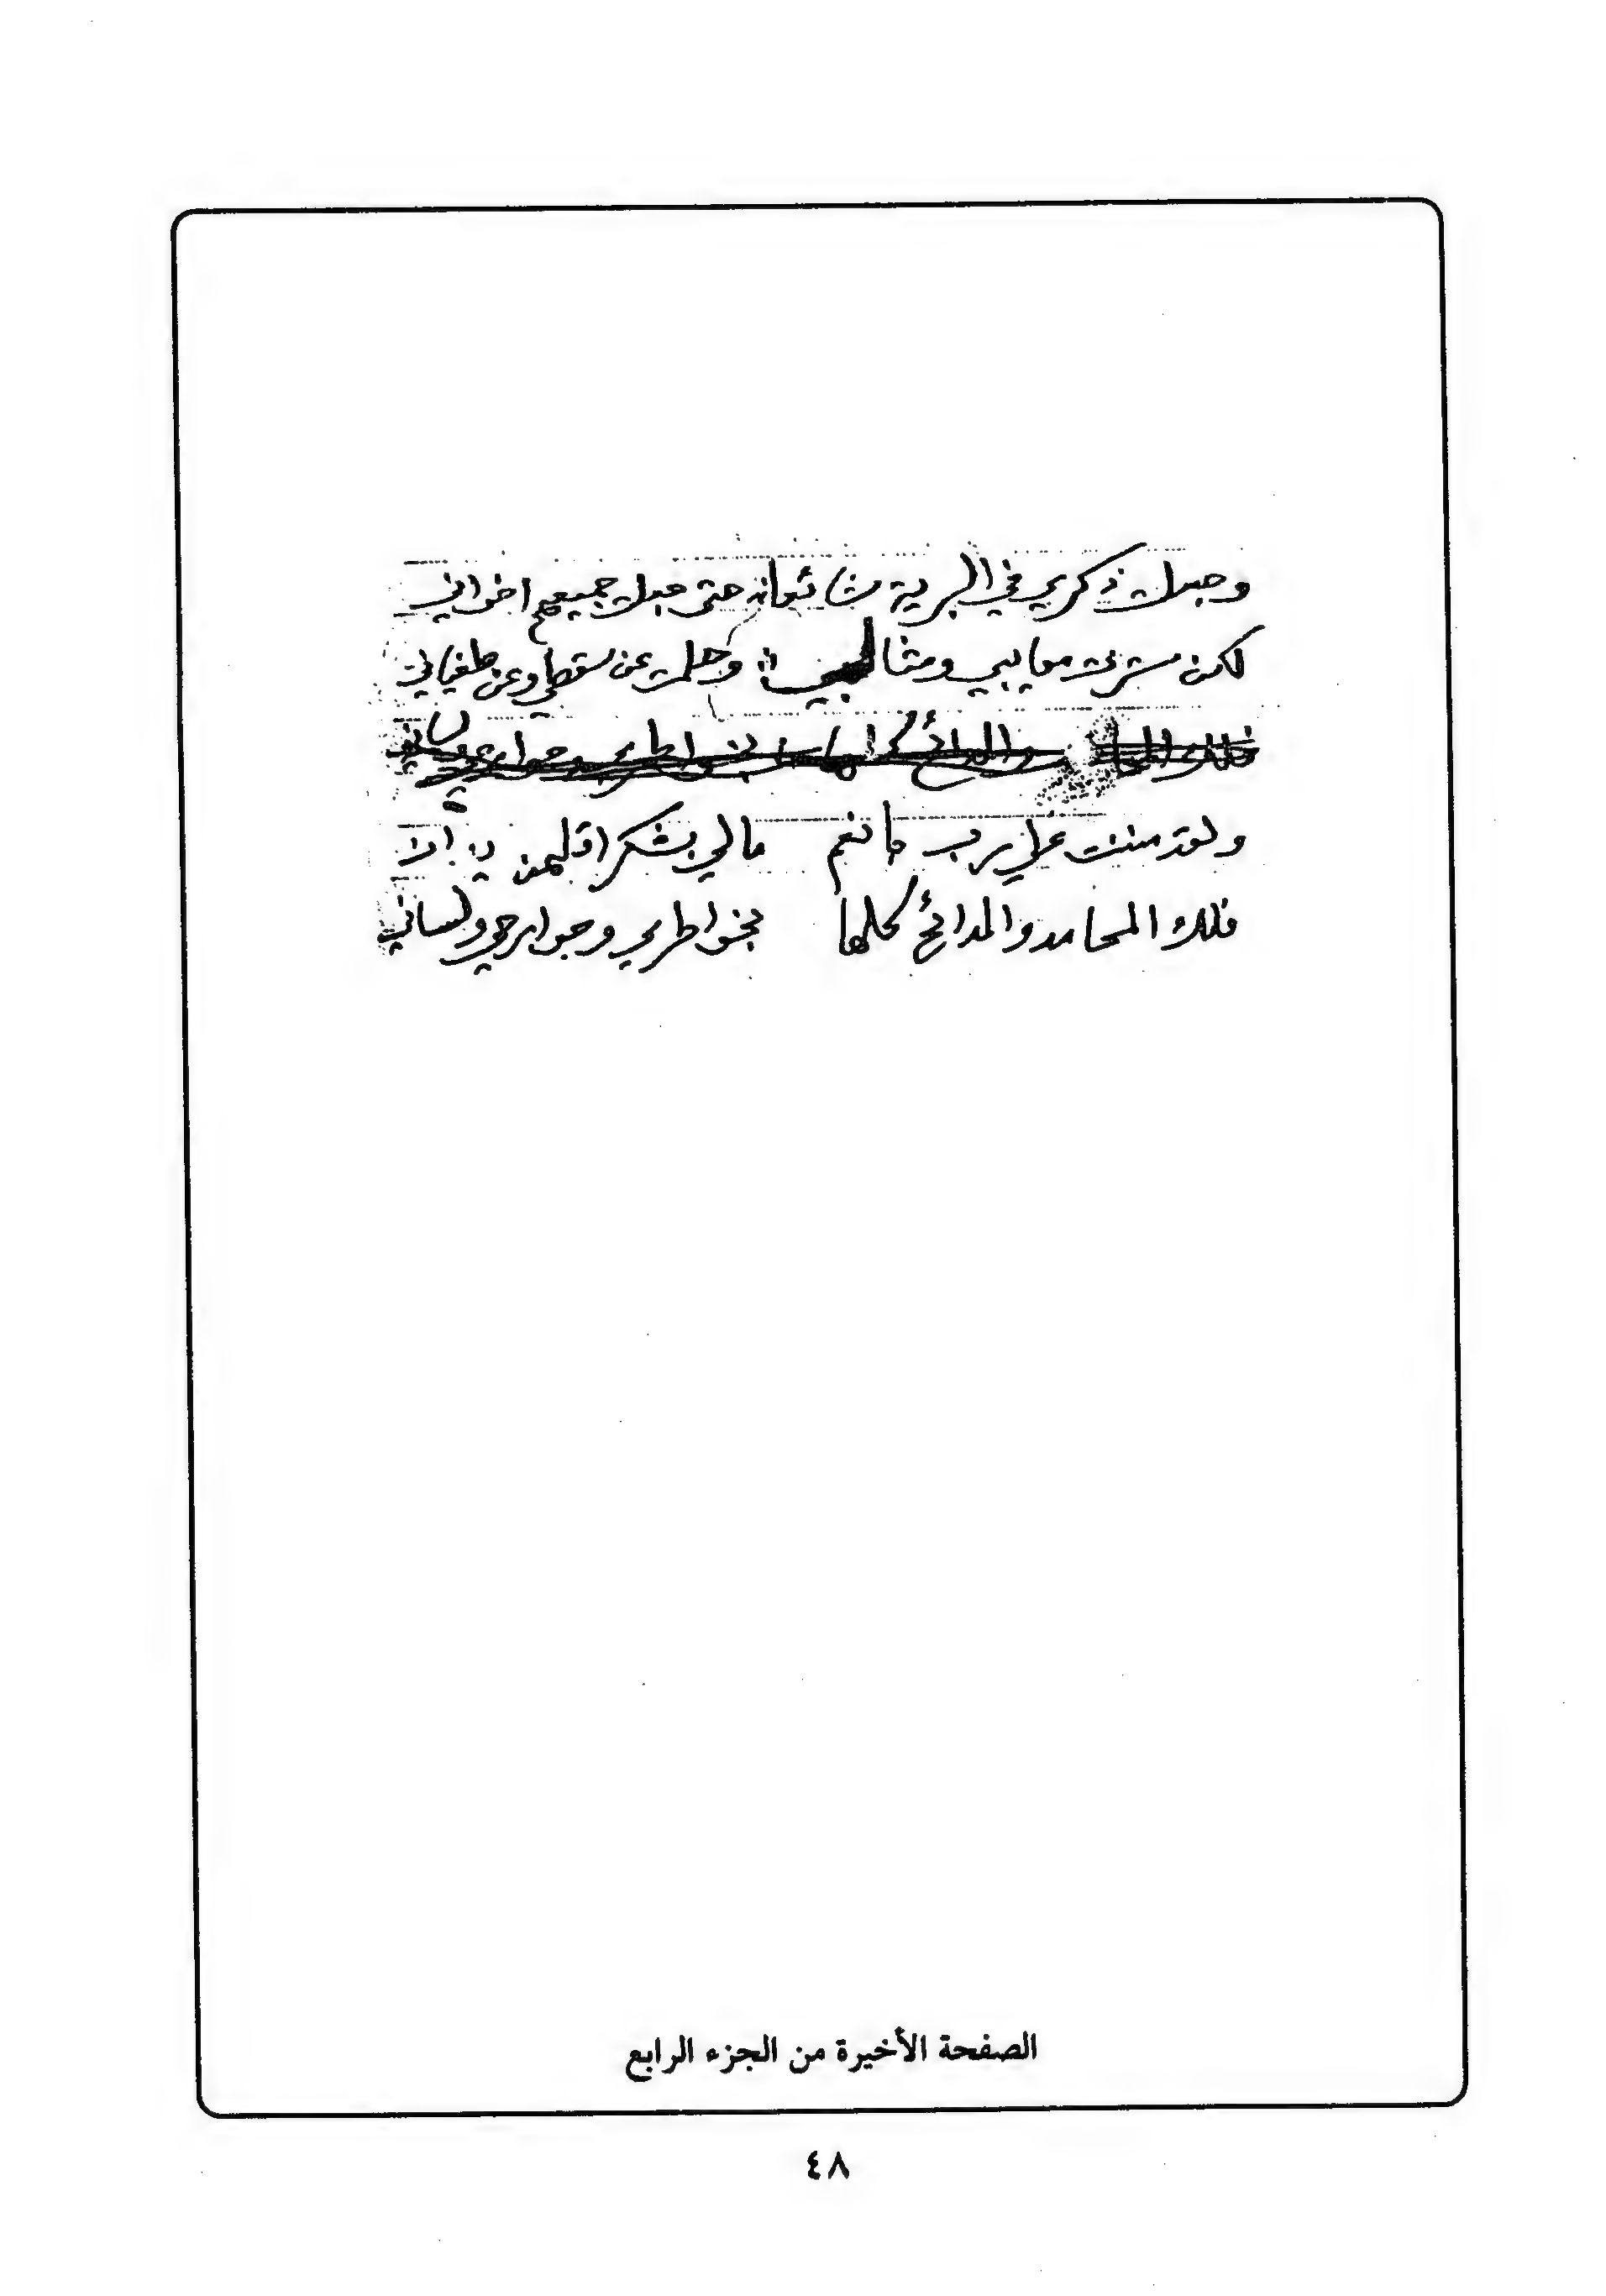 وجعلت ذكري في البرية شائعا حتى جعلت جميعهم اخواني
لكن سترت معايبي ومثالبي وحلمت عن سقطي وعن طغياني
فلك المحامد والمدائح كلها بخواطري وجوارحي ولساني
ولقد مننت علي رب بانعم مالي بشكر اقلهن يدان
فلك المحامد والمدائح كلها بخواطري وجوارحي ولساني
الصفحة الأخيرة من الجزء الرابع
٤٨